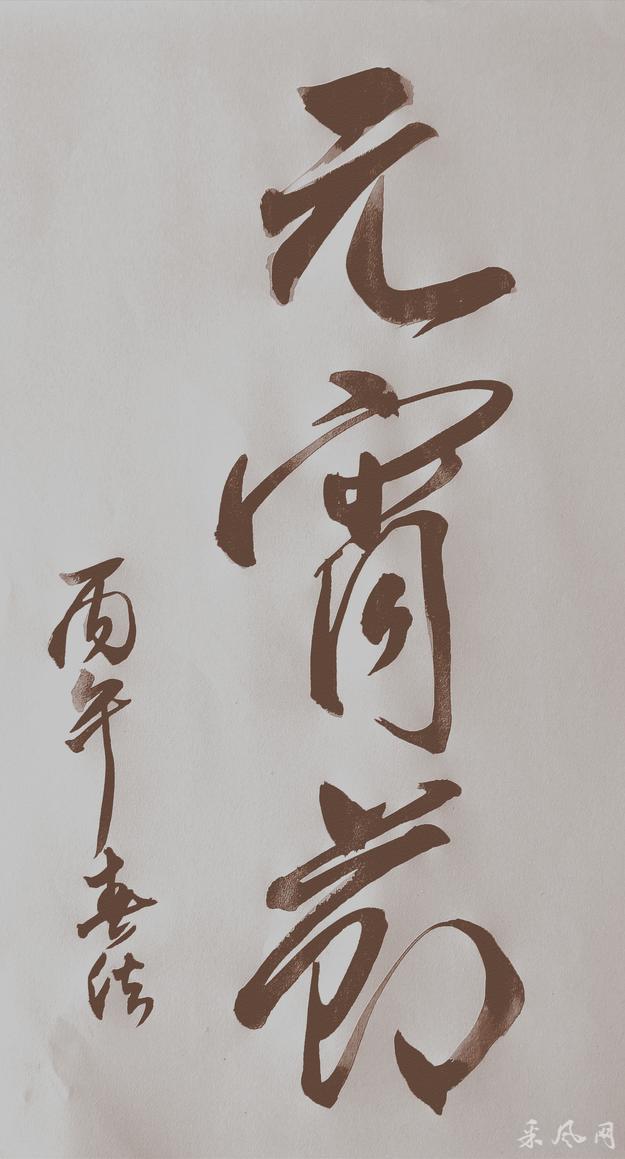 元宵節
丙午春法
采风网